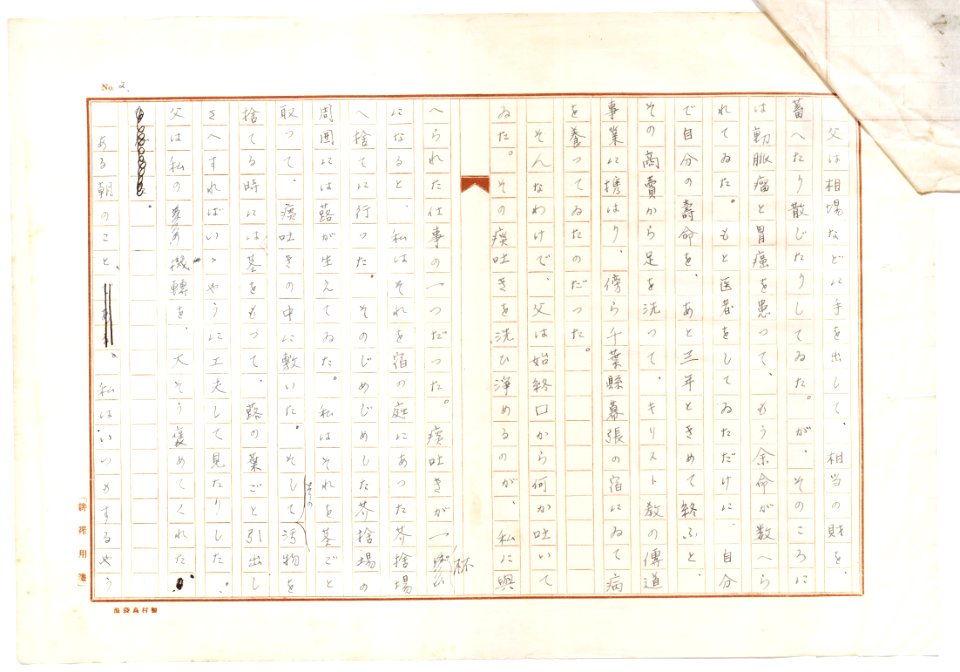 No. 2
父は相場などに手を出して、相当の財を
蓄へたり散じたりしてゐた。が、そのころに
は動脈瘤と胃癌を患って、もう余命が数へら
れてゐた。もと医者をしてゐただけに、自分
で自分の壽命を、あと三年ときめて終ふと、
その商賣から足を洗つて、キリスト教の傳道
事業に携はり、傍ら千葉縣幕張の宿にゐて病
を養ってゐたのだった。
そんなわけで、父は始終口から何か吐いて
ゐた。その痰吐きを洗ひ浄めるのが、私に与
へられた仕事の一つだつた。痰吐きが一杯
になると、私はそれを宿の庭にあつた芥捨場
へ捨てに行つた。そのじめじめした芥捨場の
周囲には蕗が生えてゐた。私はそれを茎ごと
取つて、痰吐きの中に敷いた。そして汚物を
捨てる時には茎をもつて、蕗の葉ごと引出し
さへすればいゝやうに工夫して見たりした。
父は私の機轉を、大そう褒めてくれた。
ある朝のこと、私はいつもするやう